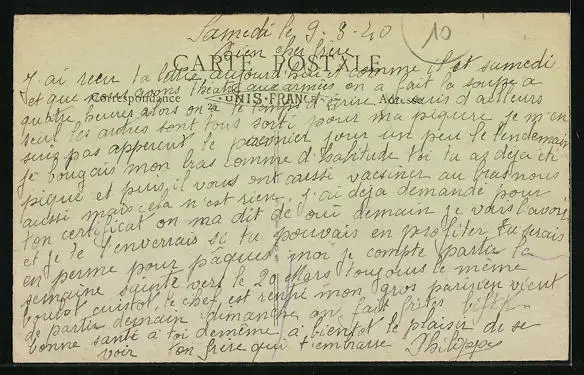 10
Samedi le 9-3-40
Bien cher frère
CARTE POSTALE
J'ai recu ta lettre aujourd'hui et comme il et samedi
et que nous avons théatre aux armées on a fait la soupe a
Correspondance
UNIS-FRANCE
Adresse
quatre heures alors on a le temps d'écrire je suis d'ailleurs
seul les autres sont tous sorti pour ma piqure je m'en
suis pas apperçut le premier jour un peu le lendemain
je bougais mon bras comme d'habitude toi tu as déja été
piqué et puis il vous ont aussi vacsiner au bras nous
aussi mais cela n'est rien. j'ai déja demandé pour
ton certificat on ma dit de oui demain je vais l'avoir
et je te l'enverrais si tu pouvais en profiter tu serais
en perme pour paques moi je compte partir la
semaine sainte vers le 20 Mars toujours le même
boulot cuistot le chef est rentré mon gros parisien vient
de partir demain dimanche on fait frites bifteck
bonne santé a toi de même a bientot le plaisir de se
voir ton frère qui t'embrasse Philippe